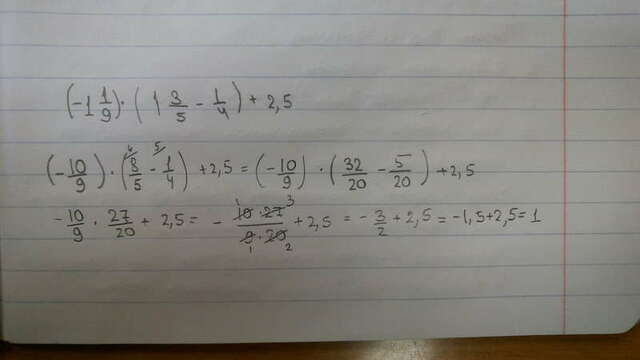 (-1 1/9)·(1 3/5 - 1/4) + 2,5
(-10/9)·(8/5 - 1/4) + 2,5 = (-10/9)·(32/20 - 5/20) + 2,5
-10/9 · 27/20 + 2,5 = - 10·27/9·20 + 2,5 = -3/2 + 2,5 = -1,5+2,5=1